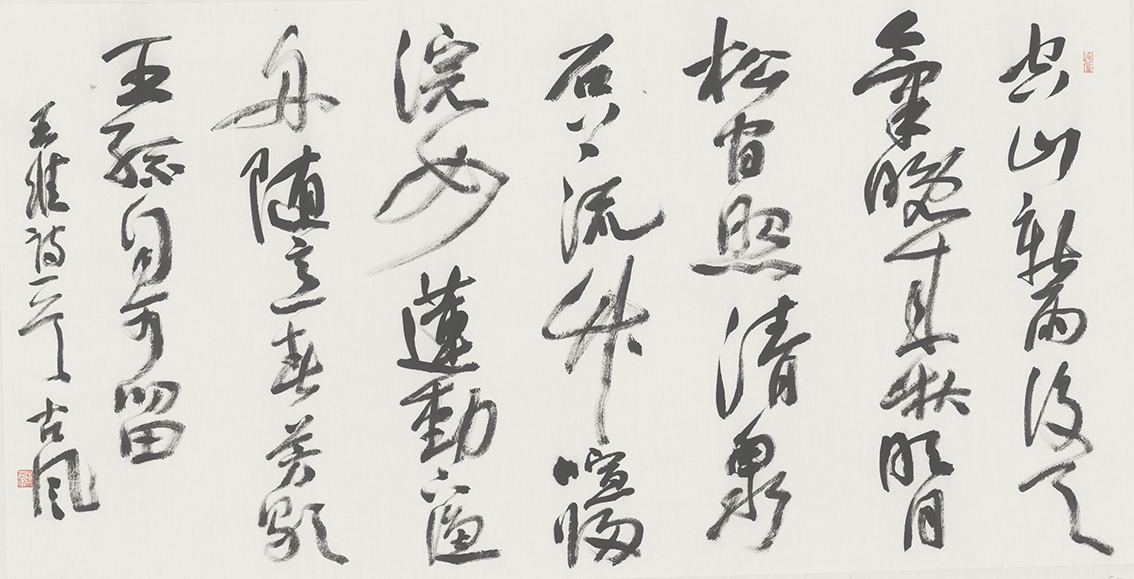 空山新雨後天
氣晚來秋明月
松間照清泉
石上流竹喧歸
浣女蓮動下漁
舟随意春芳歇
王孫自可留
王維詩一首 古風